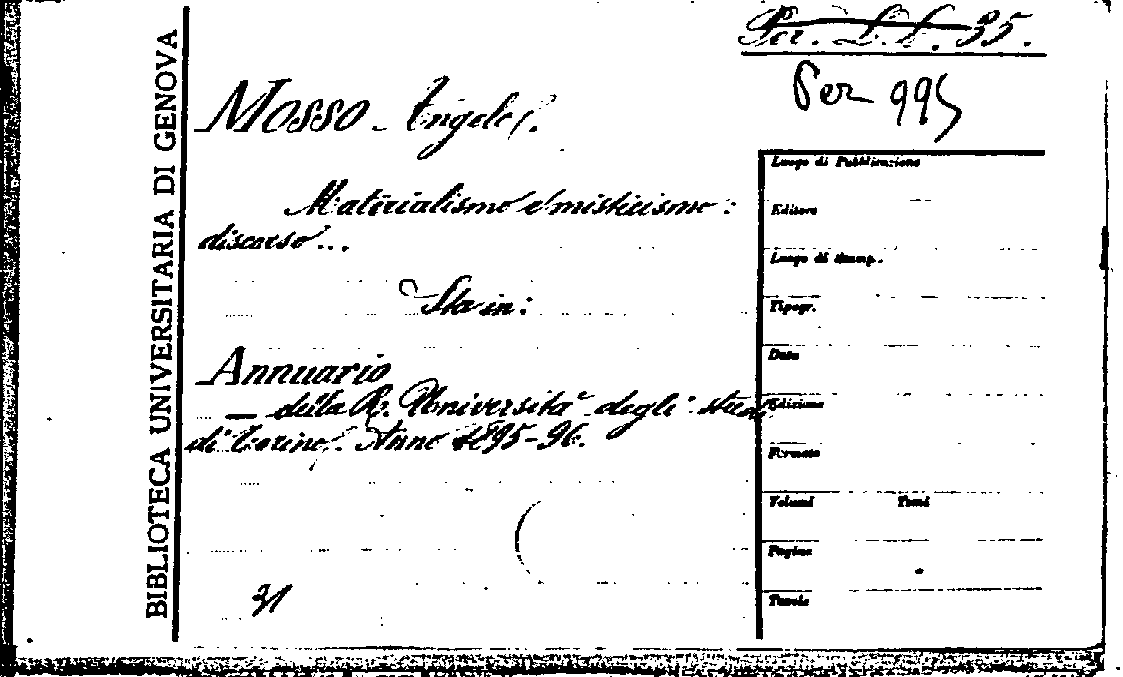 Per. L.L. 35.
Per 995
BIBLIOTECA UNIVERSITARIA DI GENOVA
MOSSO Angelo.
Materialismo e misticismo:
discorso...
Sta in:
Annuario
— della R. Università degli studi
di Torino. Anno 1895-96.
31
Luogo di Pubblicazione
Editore
Luogo di stamp.
Tipogr.
Data
Edizione
Formato
Volumi Tomi
Pagine
Tavole